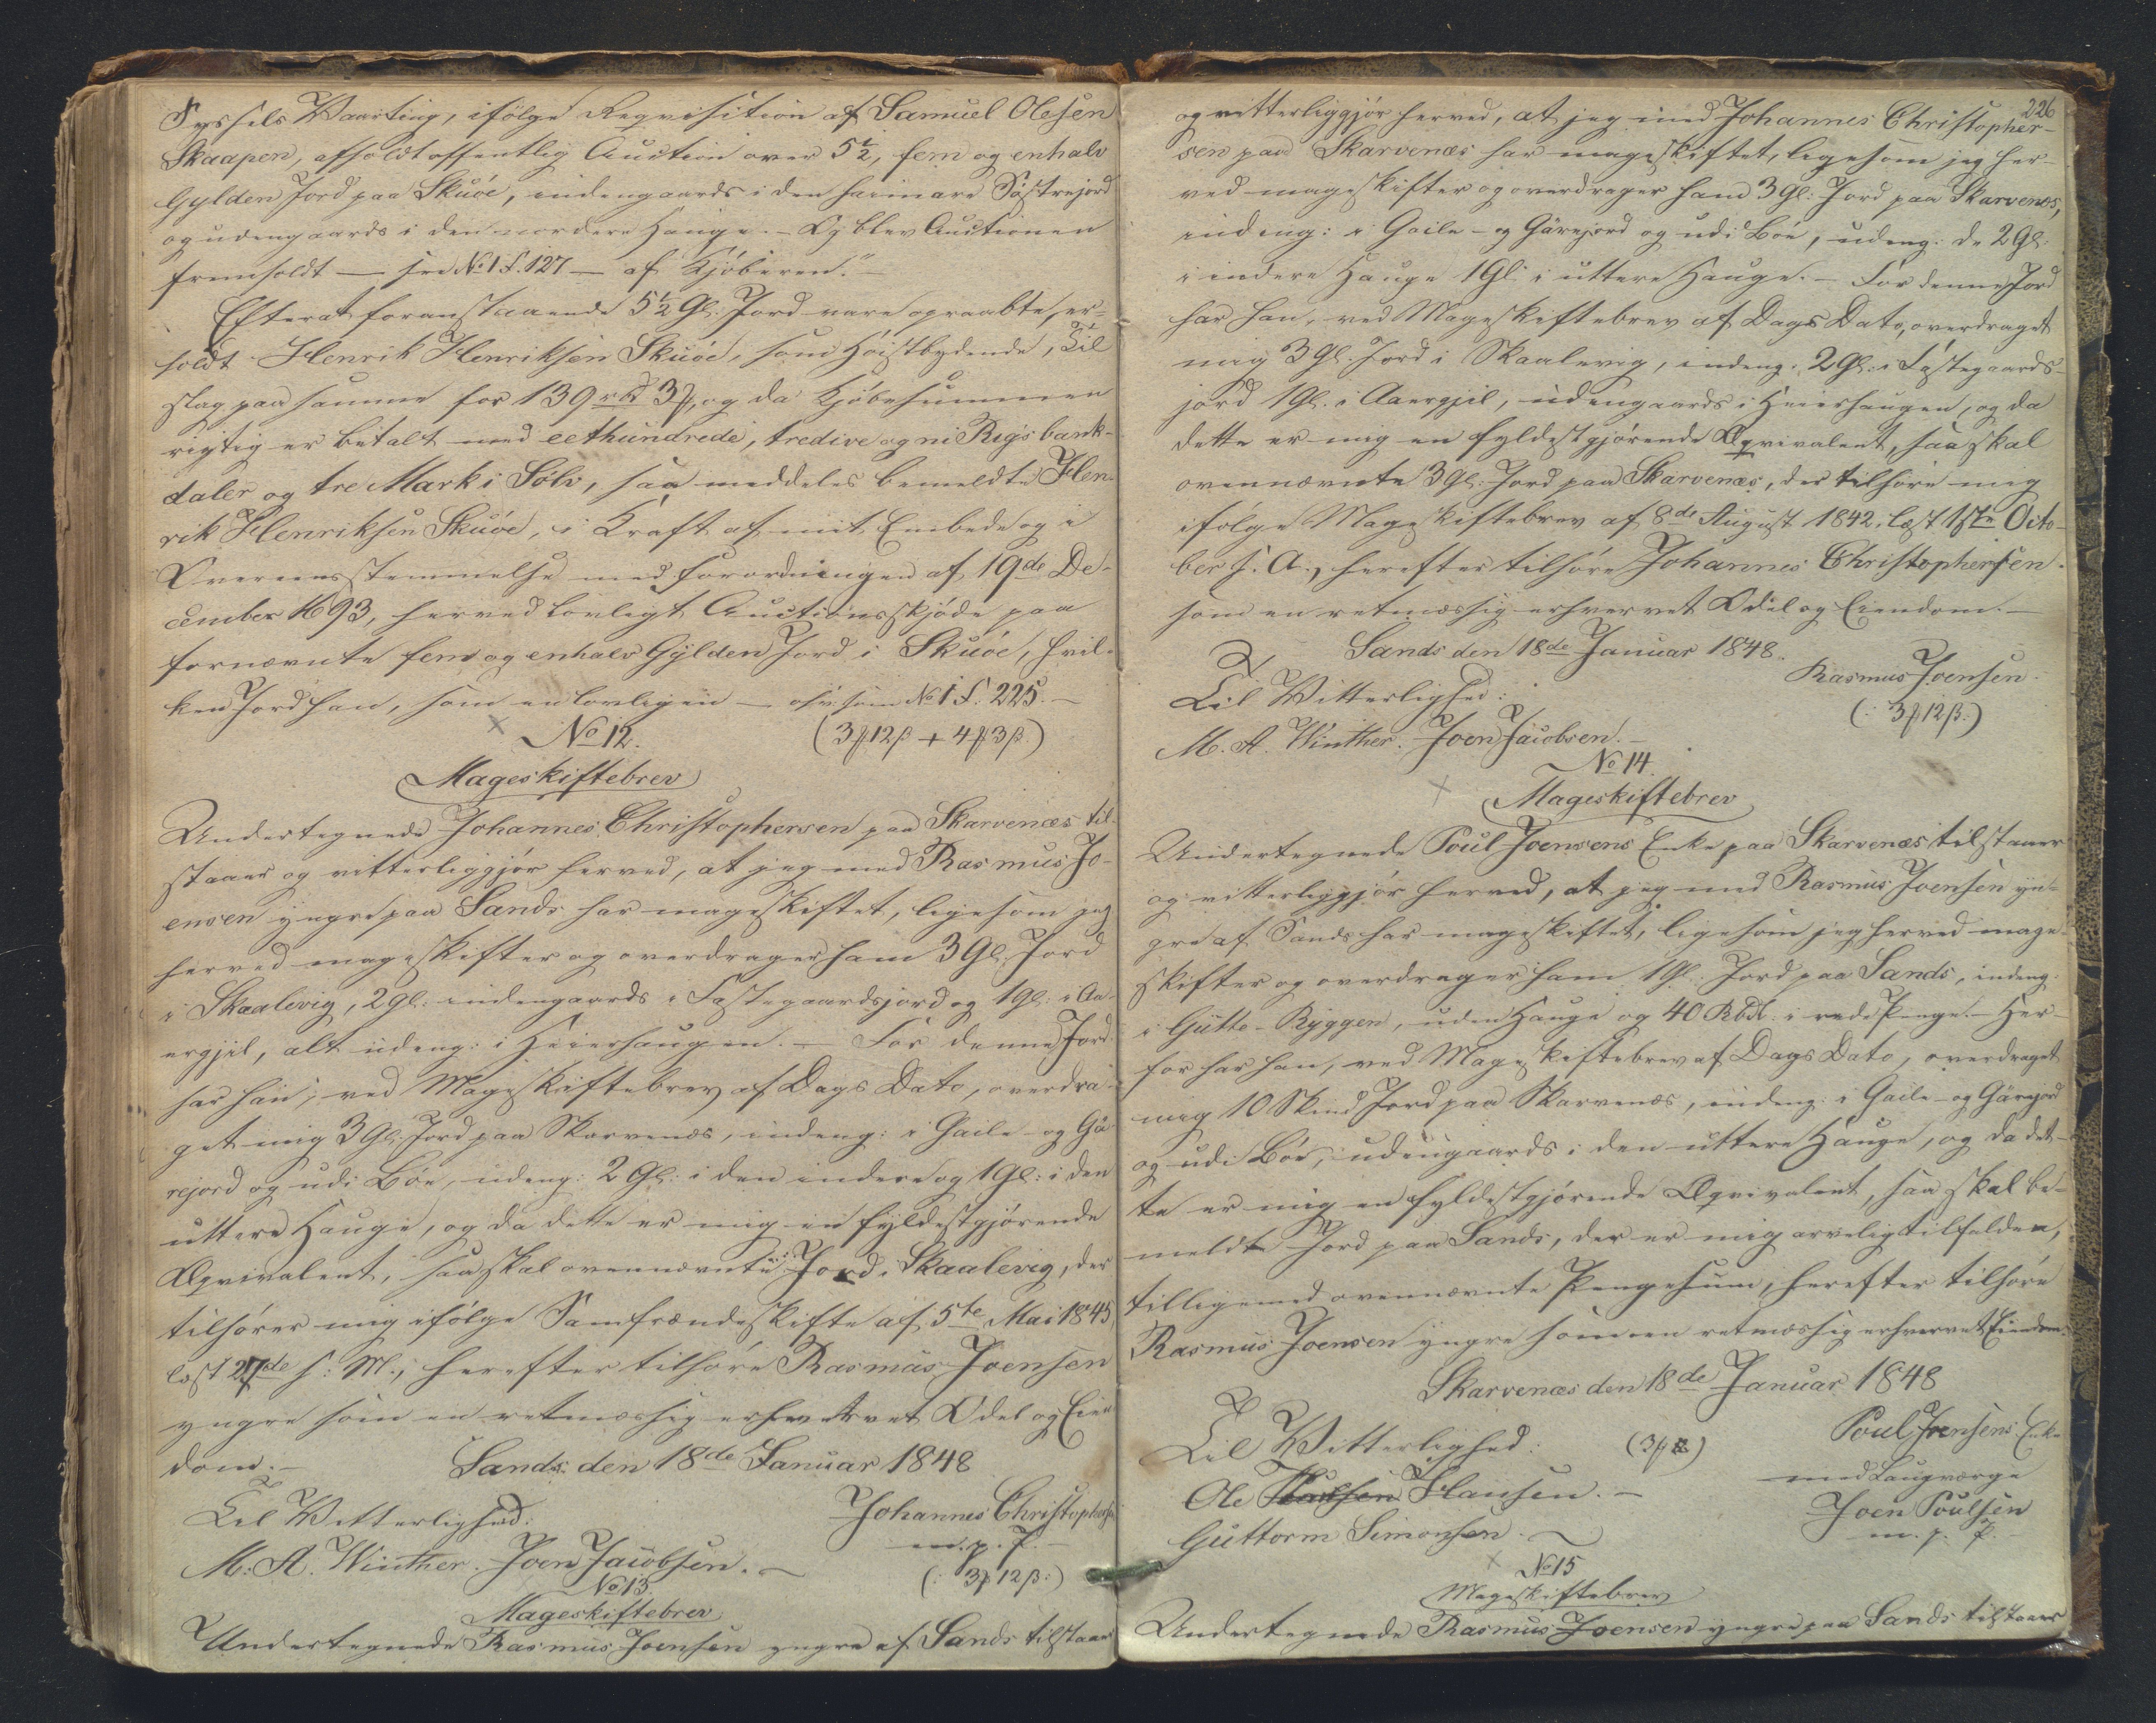 Syssels Vaarting, ifölge Reqvisition af Samuel Olesen
Skaapen, afholdt offentlig Auction over 5½, fem og enhalv
Gylden Jord paa Skuöe, indengaards i den saimare Söstrejord
og udengaards i den nordere Hauge. – Og blev Auctionen
fremholdt — see No 1 S. 127 — af Kjöberen." –
Efterat foranstaaende 5½ Gl. Jord vare opraabte, er-
holdt Henrik Henriksen Skuöe, som höistbydende, Til
slag paa samme for 139 rbd 3 ₰, og da Kjöbesummen
rigtig er betalt med eethundrede, tredive og ni Rigsbank-
daler og tre Mark i Sölv, saa meddeles bemeldte Hen-
rik Henriksen Skuöe, i Kraft af mit Embede og i
Overeensstemmelse med Forordningen af 19de De-
cember 1693, herved lovligt Auctionsskjöde paa
fornævnte fem og enhalv Gylden Jord i Skuöe, hvil-
ken Jord han, som en lovlig en — osv. som No 1 S. 225. –
No 12. (3₰ 12 β + 4₰ 3 β)
Mageskiftebrev
Undertegnede Johannes Christophersen paa Skarvenæs til-
staaer og vitterliggjør herved, at jeg med Rasmus Jo-
ensen yngre paa Sands har mageskiftet, ligesom jeg
herved mageskifter og overdrager ham 3 Gl. Jord
i Skaalevig, 2 gl. indengaards i Fæstegaardsjord og 1 Gl. i Aa-
ergjil, alt udeng: i Heiershaugen. – For denne Jord
har han, ved Mageskiftebrev af Dags Dato, overdra-
get mig 3 Gl. Jord paa Skarvenæs, indeng: i Gaile- og Gä-
rejord og udi Böe, udeng: 2 Gl: i den indere og 1 Gl: i den
uttere Hauge, og da dette er mig en fyldestgjörende
Æqvivalent, saa skal ovennævnte Jord i Skaalevig, der
tilhörer mig ifölge Samfrændeskifte af 5te Mai 1845,
læst 27de s: M., herefter tilhöre Rasmus Joensen
yngre som en retmæssig erhvervet Odel og Eien
dom. – Sands den 18de Januar 1848
Til Vitterlighed: Johannes Christophersen
M. A. Winther. Joen Jacobsen. – m. p. P. –
No 13. (: 3₰ 12 β :)
Mageskiftebrev
Undertegnede Rasmus Joensen yngre af Sands tilstaaer
226
og vitterliggjör herved, at jeg med Johannes Christopher-
sen paa Skarvenæs har mageskiftet, ligesom jeg her-
ved mageskifter og overdrager ham 3 gl: Jord paa Skarvenæs,
indeng: i Gaile- og Gärejord og udi Böe, udeng: de 2 Gl:
i indere Hauge 1 Gl: i uttere Hauge. – For denne Jord
har han, ved Mageskiftebrev af Dags Dato, overdraget
mig 3 Gl. Jord i Skaalevig, indeng: 2 Gl: i Fæstegaards-
jord 1 Gl. i Aaergjil, udengaards i Heiershaugen, og da
dette er mig en fyldestgjörende Æqvivalent, saa skal
ovennævnte 3 Gl. Jord paa Skarvenæs, der tilhöre mig
ifölge Mageskiftebrev af 8de August 1842, læst 1ste Octo-
ber s. A., herefter tilhöre Johannes Christophersen
som en retmæssig erhvervet Odel og Eiendom. –
Sands den 18de Januar 1848.
Til Vitterlighed: Rasmus Joensen
M. A. Winther. Joen Jacobsen. – (: 3₰ 12 β :)
No 14.
Mageskiftebrev
Undertegnede Poul Joensens Enke paa Skarvenæs tilstaaer
og vitterliggjör herved, at jeg med Rasmus Joensen yn-
gre af Sands har mageskiftet, ligesom jeg herved mage-
skifter og overdrager ham 1 Gl. Jord paa Sands, indeng.
i Gutte-Ryggen, uden Hauge og 40 Rbdl. i rede Penge. – Her-
for har han, ved Mageskiftebrev af Dags Dato, overdraget
mig 10 Skind Jord paa Skarvenæs, indeng: i Gaile- og Gärejord
og udi Böe, udengaards i den uttere Hauge, og da det-
te er mig en fyldestgjörende Æqvivalent, saa skal be-
meldte Jord paa Sands, der er mig arvelig tilfalden,
tilligemed ovennævnte Pengesum, herefter tilhöre
Rasmus Joensen yngre som en retmæssig erhvervet Eiendom.
Skarvenæs den 18de Januar 1848
Til Vitterlighed: (3₰ ) Poul Joensens Enke
Ole Hansen. – med Laugværge
Guttorm Simonsen. – Joen Poulsen
m. p. P.
No 15
Mageskiftebrev
Undertegnede Rasmus Joensen yngre paa Sands tilstaaer